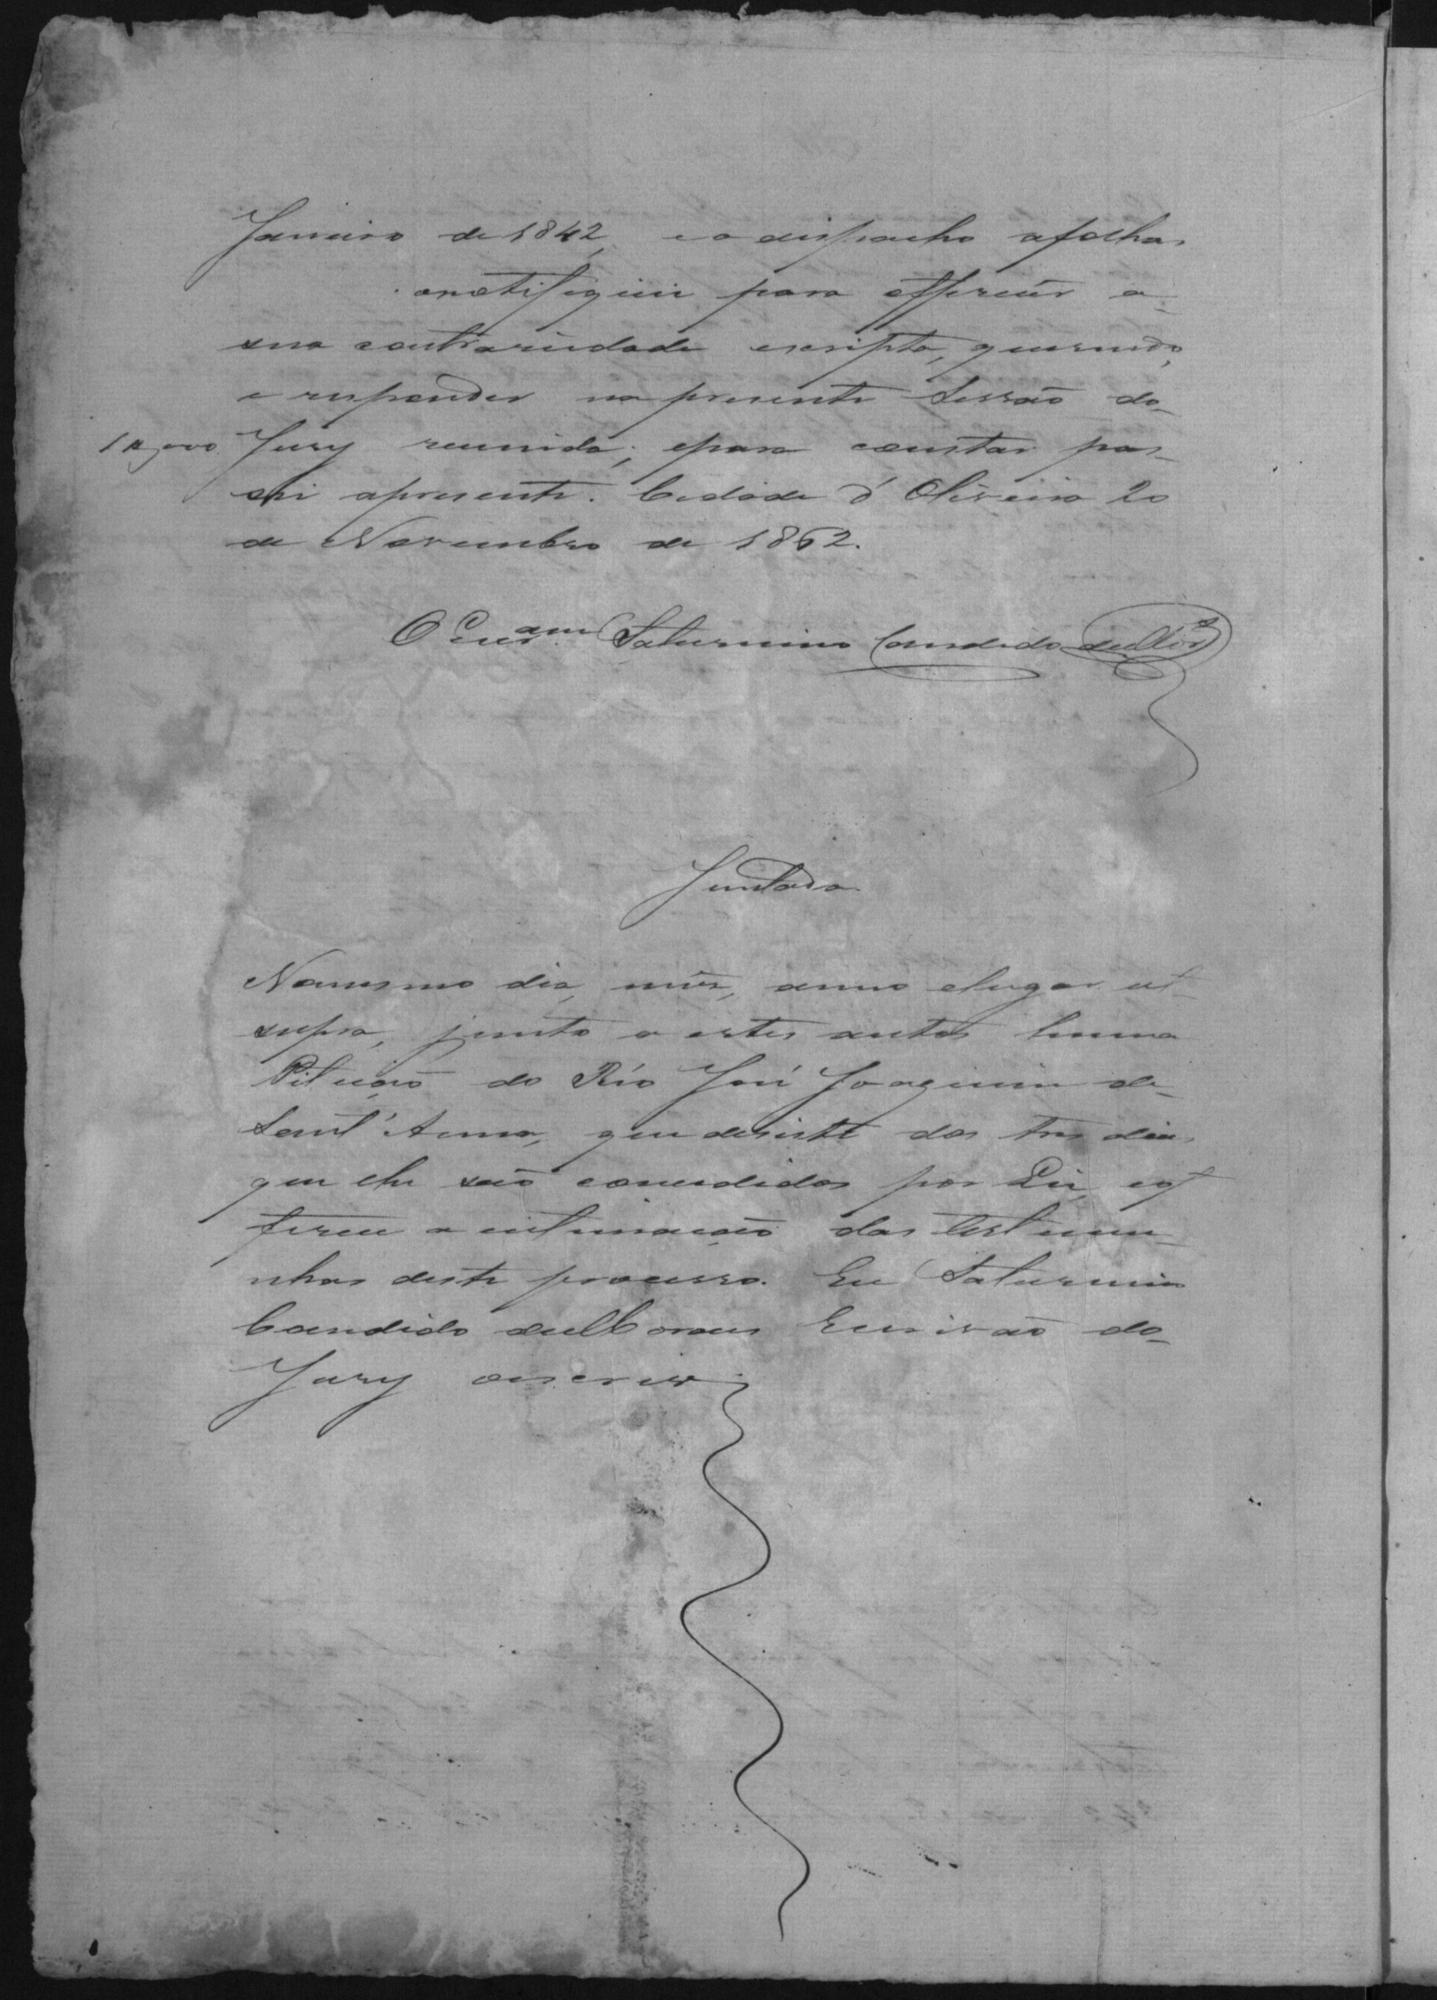 Janeiro de 1842, e o despacho a folhas
onotifiquei para offerecer a
sua contrariedade escripta, querendo,
e responder na presente Sessão do
Jury reunido; e para constar pas-
sei a presente. Cidade d'Oliveira 20
de Novembro de 1862.
O Escr.am Saturnino Candido de
Juntada
No mesmo dia, mês, anno e lugar ut
supra, junto a estes autos huma
Petição do Réo José Joaquim de
Sant'Anna, que desiste dos tres dias
que lhe são concedidos por Lei, e
a intimação das testemu-
nhas deste processo. Eu Saturnino
Candido de Moraes Escrivão do
Jury o escrevi